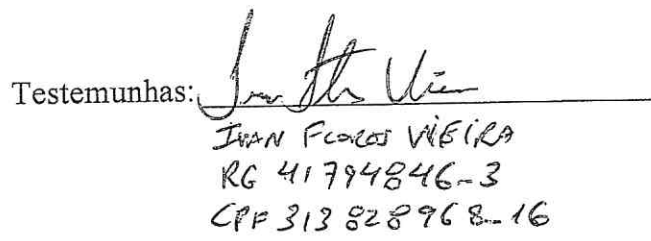 Testemunhas:
IVAN FLORES VIEIRA
RG 41794846-3
CPF 313 828968-16